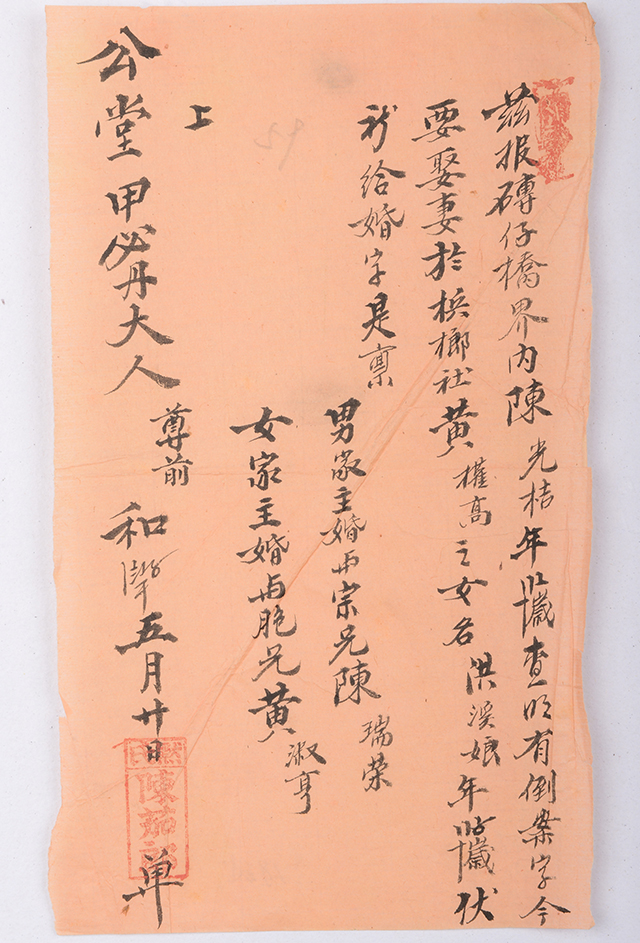 茲报磚仔橋界内陳光桔年歲查明有倒案字今
要娶妻於梹榔社黄權高之女名洪溪娘年歲伏
祈給婚字是禀
男家主婚而宗兄陳瑞荣
女家主婚而胞兄黄淑亨
上
公堂甲必丹大人尊前
和五月廿日单
陳茄